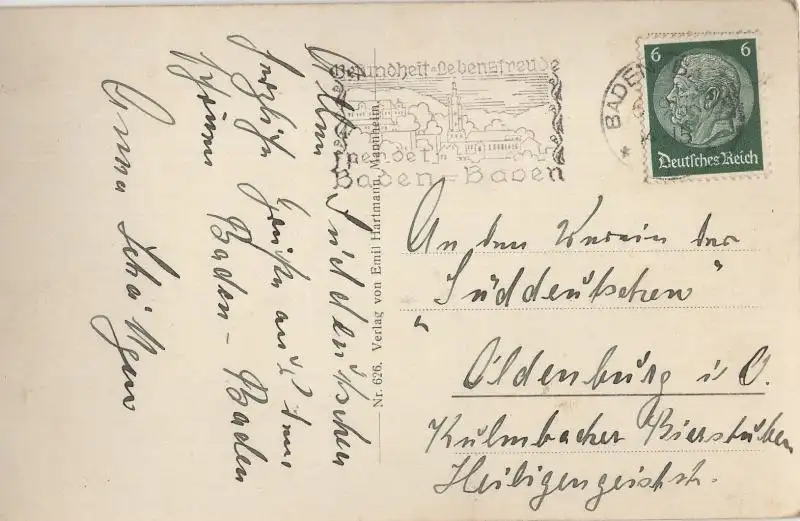 Allen Süddeutschen
herzliche Grüße aus dem
schönen Baden-Baden
Anna
Nr. 626. Verlag von Emil Hartmann, Mannheim.
Gesundheit Lebensfreude
spendet
Baden=Baden
BADEN
6 6
Deutsches Reich
An den Verein der
„Süddeutschen“
Oldenburg i. O.
Kulmbacher Bierstuben
Heiligengeiststr.